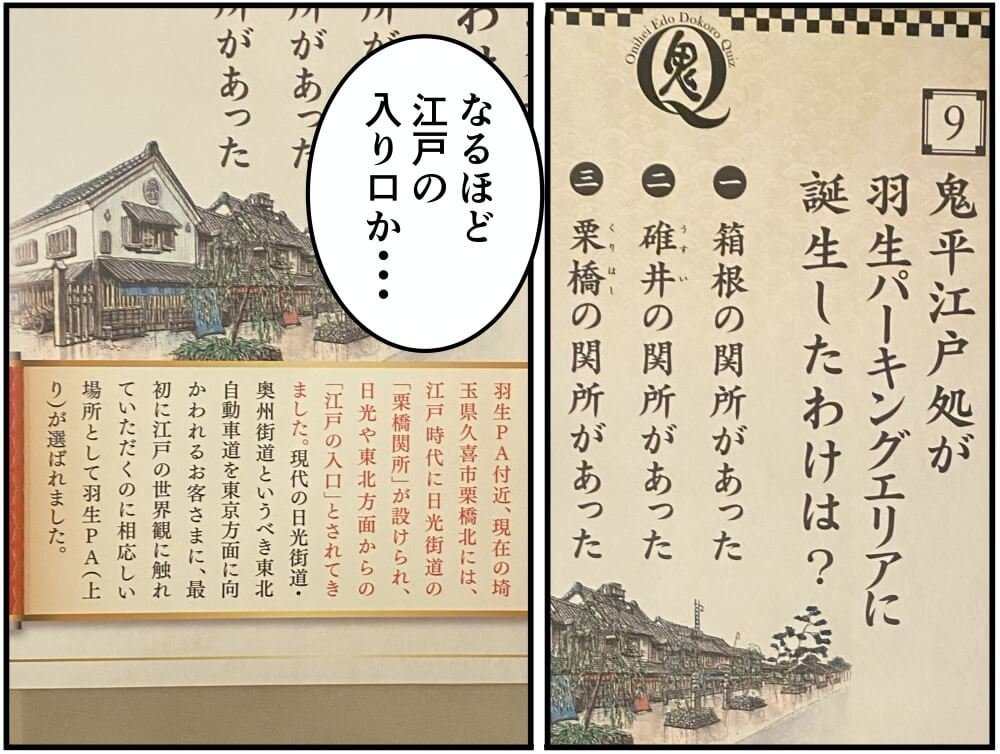 Onihei Edo Dokoro Quiz
鬼
9
鬼平江戸処が
羽生パーキングエリアに
誕生したわけは?
一 箱根の関所があった
二 碓井の関所があった
うすい
三 栗橋の関所があった
くりはし
なるほど
江戸の
入り口か・・・・
わけ
所があった
所があった
所があった
羽生PA付近、現在の埼
玉県久喜市栗橋北には、
江戸時代に日光街道の
「栗橋関所」が設けられ、
日光や東北方面からの
「江戸の入口」とされてき
ました。現代の日光街道・
奥州街道というべき東北
自動車道を東京方面に向
かわれるお客さまに、最
初に江戸の世界観に触れ
ていただくのに相応しい
場所として羽生PA(上
り)が選ばれました。